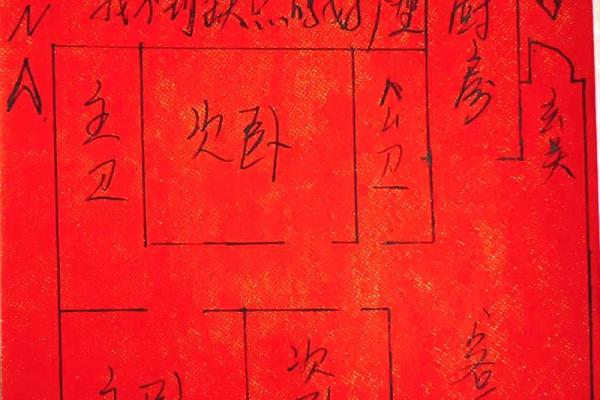 N
找不到缺点的好户型
厨房
主卫
次卧
公卫
玄关
主卧
次卧
客